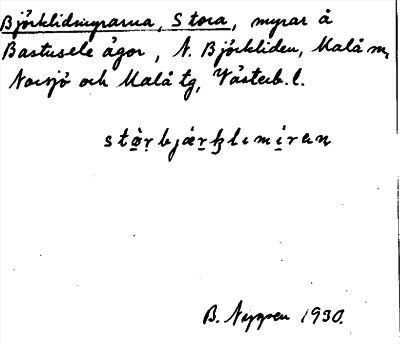 Björklidmyrarna, Stora, myrar å
Bastusele ägor, N. Björkliden, Malå m,
Norsjö och Malå tg, Västerb. l.
stò̱ṛbjæ̀ṛḵlɩmí̱ran
B. Nygren 1930.